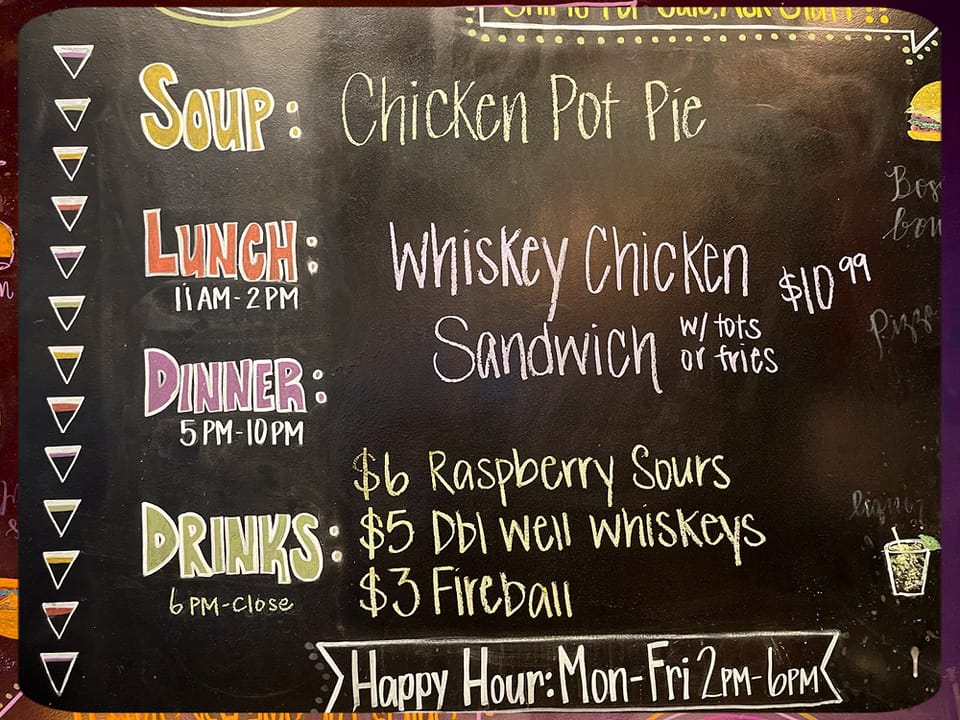 Soup: Chicken Pot Pie
Lunch:
11 AM-2 PM
Whiskey Chicken $10.99
Sandwich w/ tots
or fries
Dinner:
5 PM-10 PM
Drinks:
6 PM-Close
$6 Raspberry Sours
$5 Dbl Well Whiskeys
$3 Fireball
Happy Hour: Mon-Fri 2PM-6PM